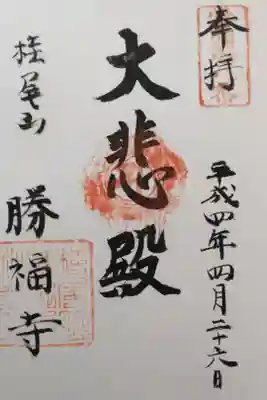 奉拝
平成四年四月二十六日
大悲殿
桂尾山
勝福寺